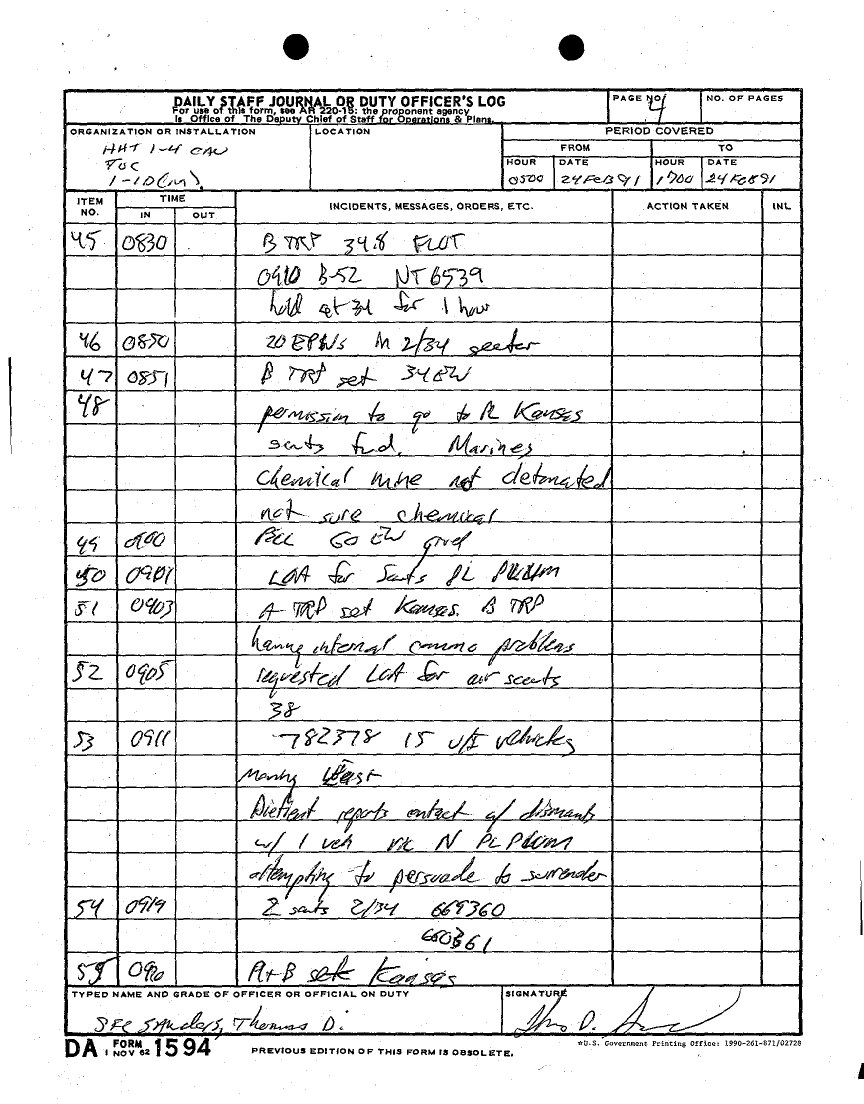 DAILY STAFF JOURNAL OR DUTY OFFICER'S LOG
For use of this form, see AR 220-15: the proponent agency
is Office of The Deputy Chief of Staff for Operations & Plans.
PAGE NO. 4
NO. OF PAGES
ORGANIZATION OR INSTALLATION
HHT 1-4 CAV
TOC
1-ID(M).
LOCATION
PERIOD COVERED
FROM
TO
HOUR DATE HOUR DATE
0500 24 FEB 91 1700 24 FEB 91
ITEM NO. TIME INCIDENTS, MESSAGES, ORDERS, ETC. ACTION TAKEN INL
IN OUT
45 0830 B TRP 34.8 FLOT
0910 B-52 NT6539
hold at 34 for 1 hour
46 0850 20 EPWs in 2/34 sector
47 0851 B TRP set 34 EW
48 permission to go to PL Kansas
scouts fwd. Marines
Chemical mine not detonated
not sure chemical
49 0900 60 EW grid
50 0901 LOA for Scouts PL Plum
51 0903 A-TRP set Kansas. B TRP
having internal commo problems
52 0905 requested LOA for air scouts
38
53 0911 782378 15 U/I vehicles
Moving West
reports contact w/ dismounts
w/ 1 veh vic N PL Plum
attempting to persuade to surrender
54 0919 2 scouts 2/34 669360
660361
55 A+B set Kansas
TYPED NAME AND GRADE OF OFFICER OR OFFICIAL ON DUTY
SFC Sanders, Thomas D.
SIGNATURE
DA FORM 1 NOV 62 1594
PREVIOUS EDITION OF THIS FORM IS OBSOLETE.
☆U.S. Government Printing Office: 1990-261-871/02728